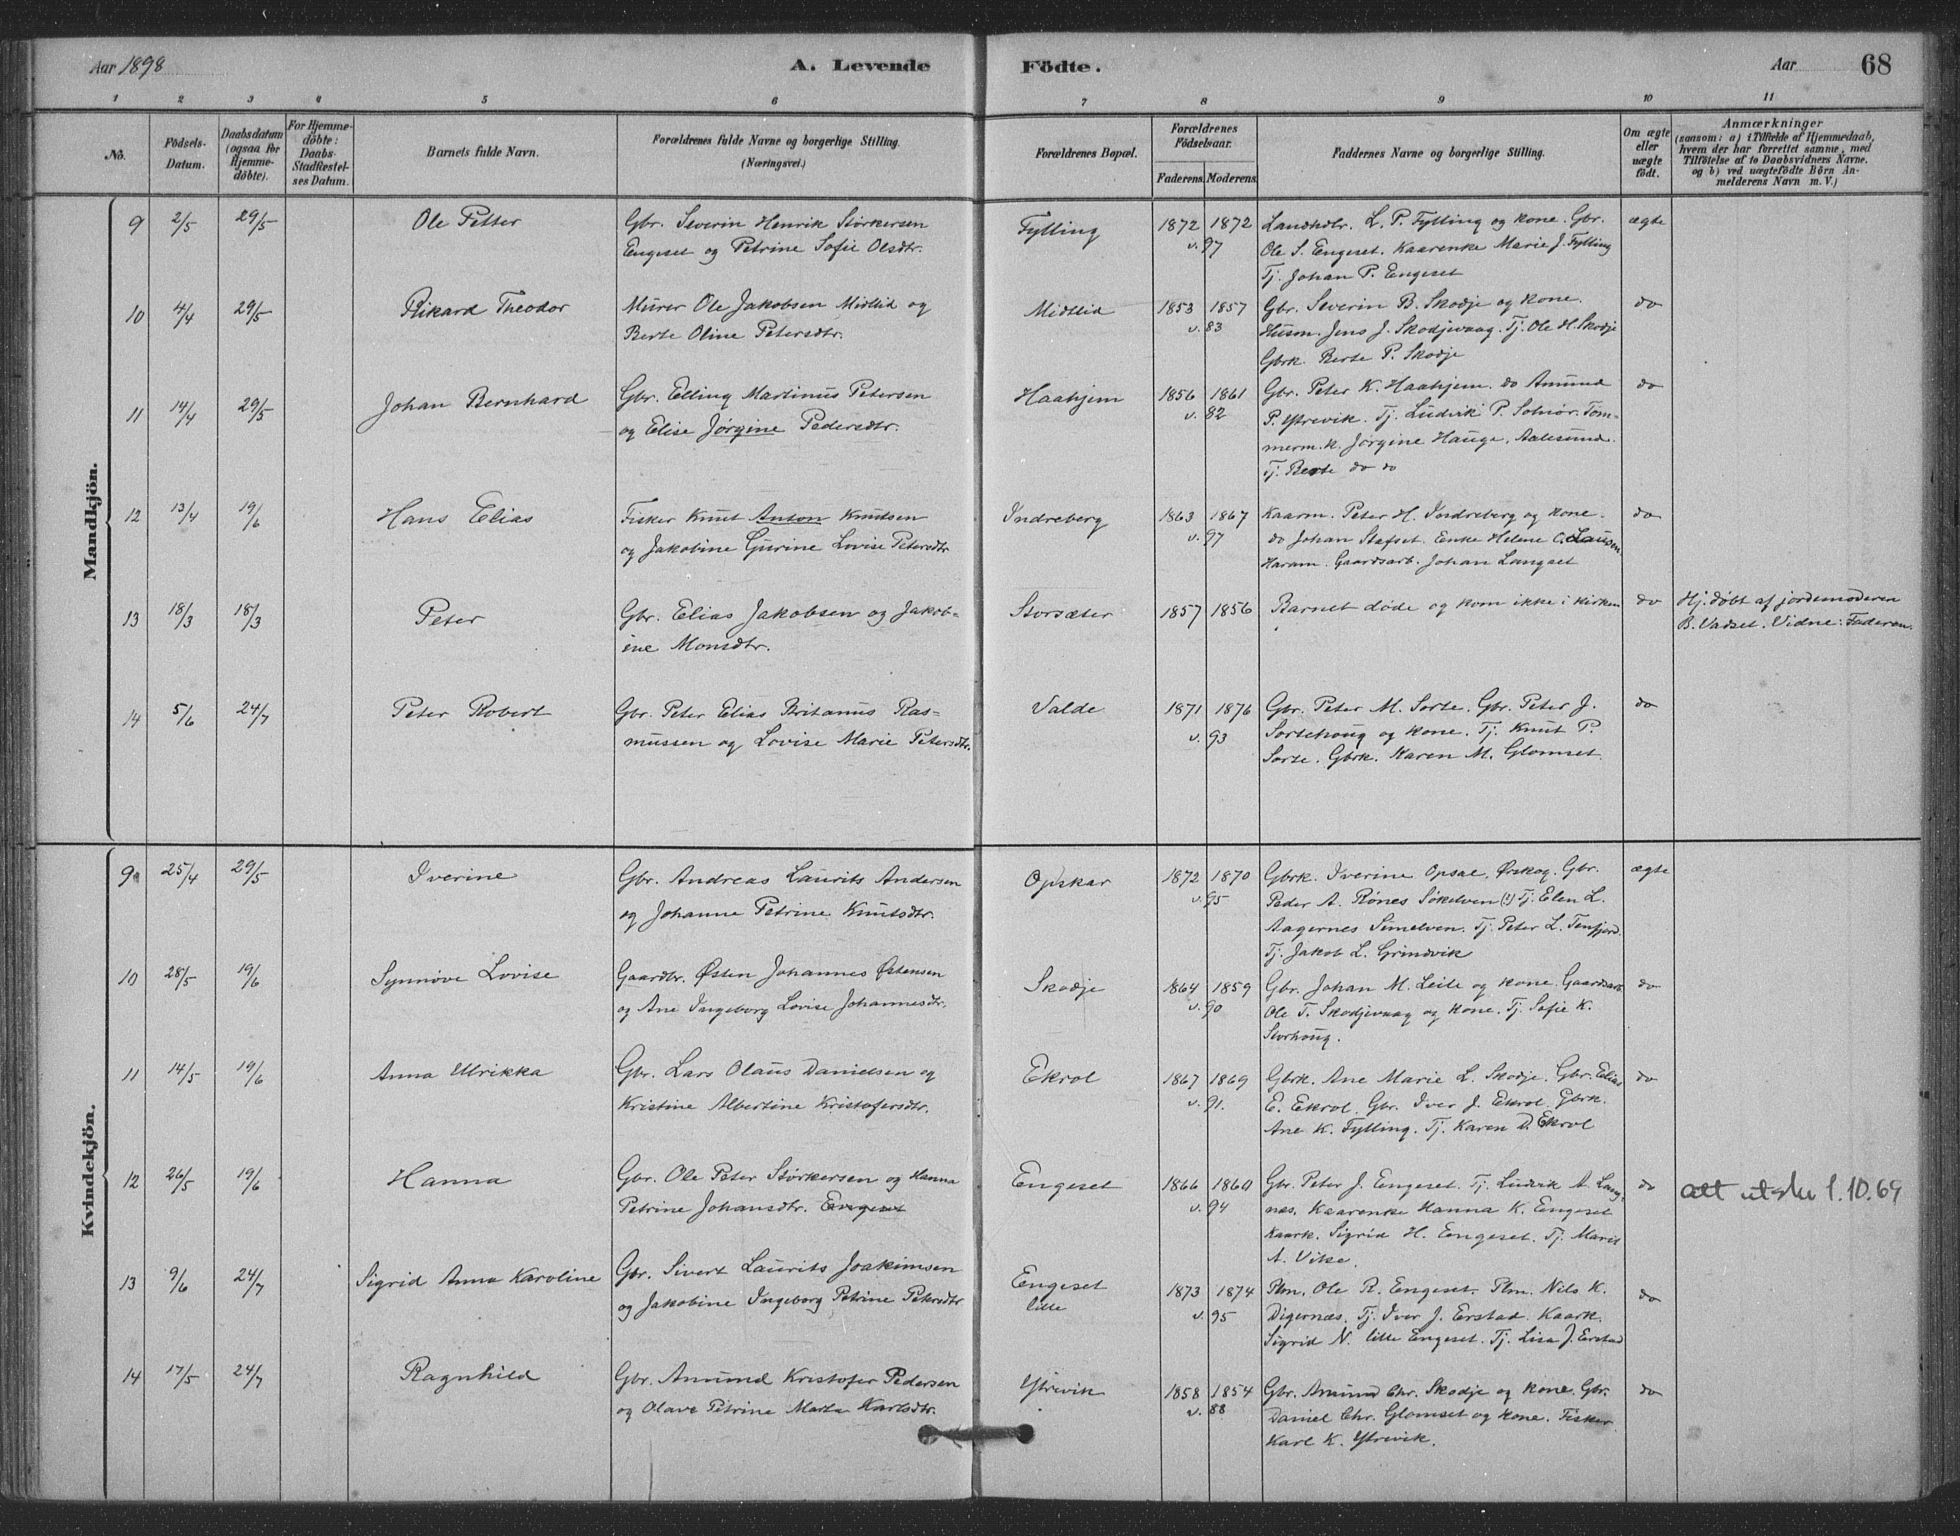 Aar 1898
A. Levende
Födte.
Aar
68
1 2 3 4 5 6 7 8 9 10 11
No.
Födsels-
Datum.
Daabsdatum
(ogsaa for
Hjemme-
döbte).
For Hjemme-
döbte:
Daabs-
Stadfæstel-
ses Datum.
Barnets fulde Navn.
Forældrenes fulde Navne og borgerlige Stilling.
(Næringsvei.)
Forældrenes Bopæl.
Forældrenes
Födselsaar.
Faderens. Moderens.
Faddernes Navne og borgerlige Stilling.
Om ægte
eller
uægte
födt.
Anmærkninger
(saasom: a) i Tilfælde af Hjemmedaab,
hvem der har forrettet samme, med
Tilföielse af to Daabsvidners Navne.
og b) ved uægtefödte Börn An-
melderens Navn m. V.)
Mandkjön.
9 2/5 29/5 Ole Petter
Gbr. Severin Henrik Størkersen
Engeset og Petrine Sofie Olsdtr.
Fylling
1872 1872
v. 97
Landhdlr. L. P. Fylling og kone. Gbr.
Ole S. Engeset. Kaarenke Marie J. Fylling
Tj. Johan P. Engeset
ægte
10 4/4 29/5 Rikard Theodor
Murer Ole Jakobsen Midtlid og
Berte Oline Petersdtr.
Midtlid
1853 1857
v. 83
Gbr. Severin B. Skodje og kone.
Husm. Jens J. Skodjevaag. Tj. Ole H. Skodje
Gbrk. Berte P. Skodje
do
11 14/4 29/5 Johan Bernhard
Gbr. Elling Martinus Petersen
og Elise Jørgine Pedersdtr.
Haahjem
1856 1861
v. 82
Gbr. Peter K. Haahjem. do Amund
P. Ytrevik. Tj. Ludvik P. Solnør. Tøm-
merm. k. Jørgine Hauge, Aalesund.
Tj. Berte do do
do
12 13/4 19/6 Hans Elias
Fisker Knut Anton Knutsen
og Jakobine Gurine Lovise Petersdtr
Indreberg
1863 1867
v. 97
Kaarm. Peter H. Indreberg og kone.
do Johan Stafset. Enke Helene C. Lausen
Haram. Gaardsarb. Johan Langset
do
13 18/3 18/3 Peter
Gbr. Elias Jakobsen og Jakob-
ine Monsdtr.
Storsæter
1857 1856
Barnet døde og kom ikke i kirken
do
Hj. døbt af jordemoderen
B. Vadset. Vidne: Faderen.
14 5/6 24/7 Peter Robert
Gbr. Peter Elias Britanus Ras-
mussen og Lovise Marie Petersdtr.
Valde
1871 1876
v. 93
Gbr. Peter M. Sorte. Gbr. Peter J.
Sortehoug og kone. Tj. Knut P.
Sorte. Gbrk. Karen M. Glomset
do
Kvindekjön.
9 25/4 29/5 Iverine
Gbr. Andreas Laurits Andersen
og Johanne Petrine Knutsdtr.
Opskar
1872 1870
v. 95
Gbrk. Iverine Opsal, Ørskog. Gbr.
Peder A. Rønes Søkelven (!) Tj. Elen L.
Aagernes Simelven. Tj. Peter L. Tenfjord.
Tj. Jakob L. Grindvik
ægte
10 28/5 19/6 Synnøve Lovise
Gaardbr. Østen Johannes Østensen
og Ane Ingeborg Lovise Johannesdtr.
Skodje
1864 1859
v. 90
Gbr. Johan M. Leite og kone. Gaardsarb.
Ole T. Skodjevaag og kone. Tj. Sofie K.
Storhoug.
do
11 14/5 19/6 Anna Ulrikka
Gbr. Lars Olaus Danielsen og
Kristine Albertine Kristofersdtr.
Ekrol
1867 1869
v. 91.
Gbrk. Ane Marie L. Skodje. Gbr. Elias
E. Ekrol. Gbr. Iver J. Ekrol. Gbrk.
Ane K. Fylling. Tj. Karen D. Ekrol
do
12 26/5 19/6 Hanna
Gbr. Ole Peter Størkersen og Hanna
Petrine Johansdtr. Engeset
Engeset
1866 1860
v. 94
Gbr. Peter J. Engeset. Tj. Ludvik A. Lang-
næs. Kaarenke Hanna K. Engeset
Kaark. Sigrid H. Engeset. Tj. Marit
A. Vikse.
do
att utskr 1.10.69
13 9/6 24/7 Sigrid Anna Karoline
Gbr. Sivert Laurits Joakimsen
og Jakobine Ingeborg Petrine Petersdtr
Engeset
lille
1873 1874
v. 95
Plm. Ole R. Engeset. Plm. Nils K.
Digernæs. Tj. Iver J. Erstad. Kaark.
Sigrid N. lille Engeset. Tj. Lisa J. Erstad
do
14 17/5 24/7 Ragnhild
Gbr. Amund Kristofer Pedersen
og Olave Petrine Marta Karlsdtr.
Ytrevik
1858 1854
v. 88
Gbr. Amund Chr. Skodje og kone. Gbr.
Daniel Chr. Glomset og kone. Fisker
Karl K. Ytrevik.
do